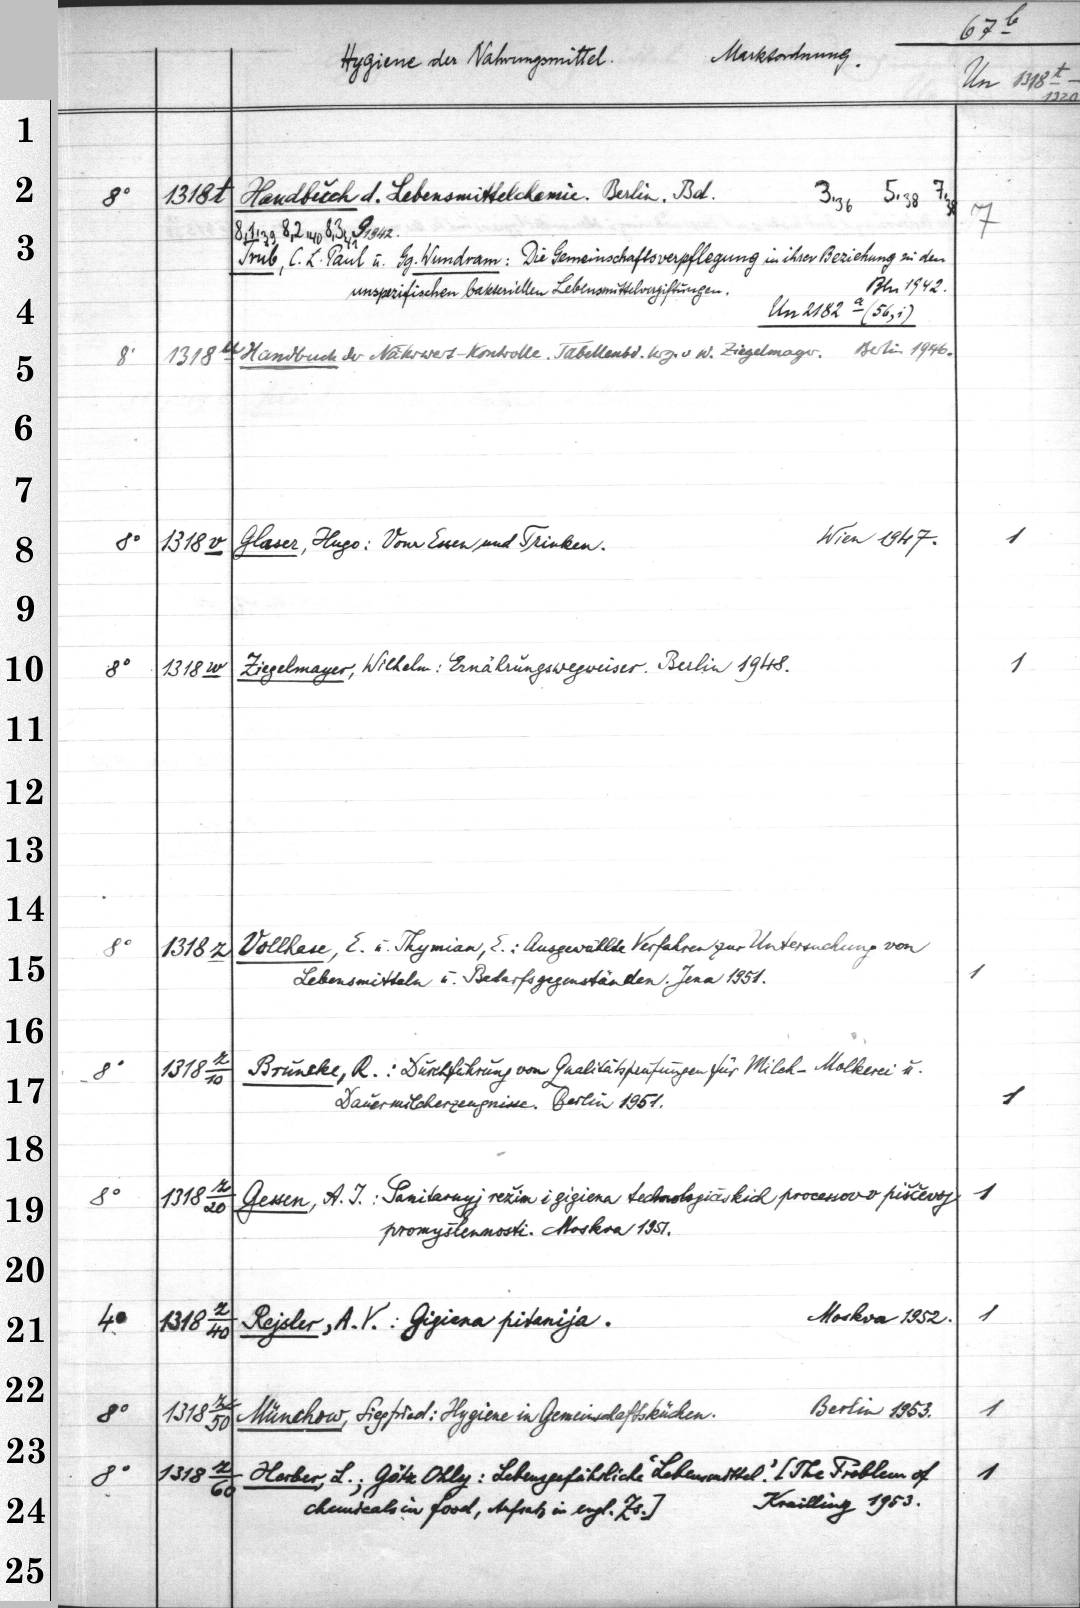 67b
Hygiene der Nahrungsmittel. Marktordnung.
Un 1318t - 1320
1
2 8° 1318t Handbuch d. Lebensmittelchemie. Berlin. Bd. 3,36 5,38 7,38 7
8,1,39 8,2,40 8,3,41 9,1942.
3 Trüb, C. L. Paul u. Gg. Wundram: Die Gemeinschaftsverpflegung in ihrer Beziehung zu den
unspezifischen bakteriellen Lebensmittelvergiftungen. Bln 1942.
4 Un 2182 a (56,i)
5 8° 1318 Handbuch der Nährwert-Kontrolle. Tabellenbd. hrg. v W. Ziegelmayer. Berlin 1946.
6
7
8 8° 1318v Glaser, Hugo: Vom Essen und Trinken. Wien 1947. 1
9
10 8° 1318w Ziegelmayer, Wilhelm: Ernährungswegweiser. Berlin 1948. 1
11
12
13
14
8° 1318z Vollhase, E. u. Thymian, E.: Ausgewählte Verfahren zur Untersuchung von
15 Lebensmitteln u. Bedarfsgegenständen. Jena 1951. 1
16
8° 1318 z/10 Bruncke, R.: Durchführung von Qualitätsprüfungen für Milch- Molkerei u.
17 Dauermilcherzeugnisse. Berlin 1951. 1
18
19 8° 1318 z/20 Gessen, A. I.: Sanitarnyj režim i gigiena technologičeskich processov v piščevoj 1
promyšlennosti. Moskva 1951.
20
21 4° 1318 z/40 Rejsler, A. V.: Gigiena pitanija. Moskva 1952. 1
22
8° 1318 z/50 Münchow, Siegfried: Hygiene in Gemeinschaftsküchen. Berlin 1953. 1
23
8° 1318 z/60 Herber, L.; Götz Ohly: Lebensgefährliche "Lebensmittel". [The Problem of 1
24 chemicals in food, Aufsatz in engl. Zs.] Krailling 1953.
25